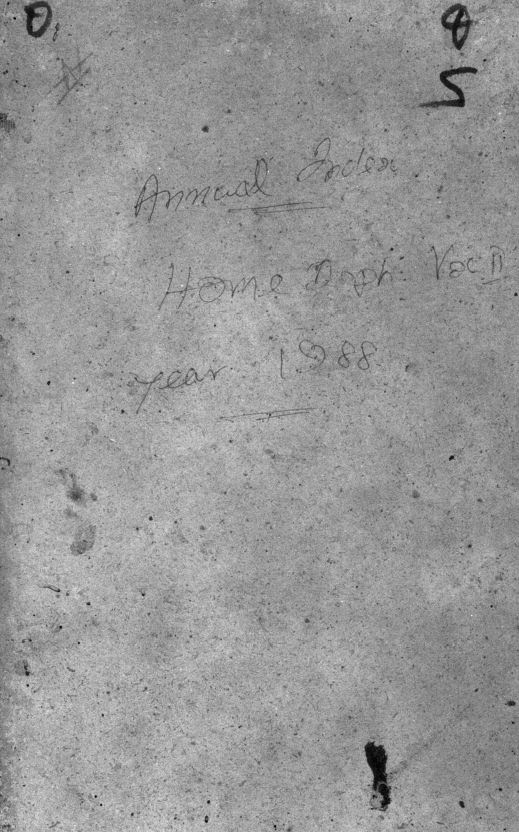 Annual Index
Home Dept. Vol II
Year 1988